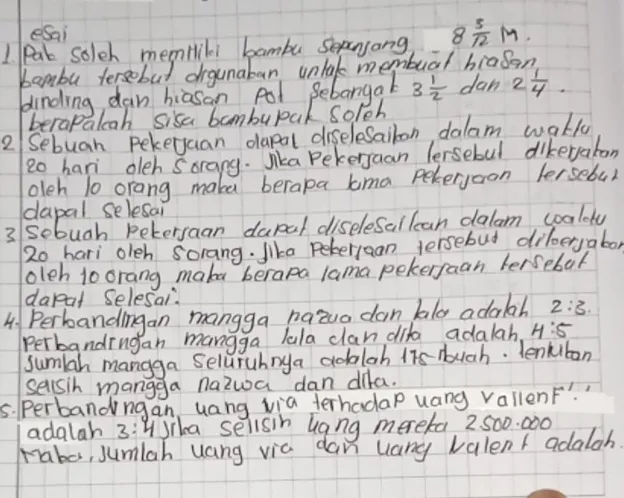 esai
1. Pak Soleh memiliki bambu sepanjang 8 5/12 M.
bambu tersebut digunakan untuk membuat hiasan
dinding dan hiasan Pot Sebanyak 3 1/2 dan 2 1/4.
berapakah sisa bambu pak Soleh
2 Sebuah Pekerjaan dapat diselesaikan dalam waktu
20 hari oleh 5 orang. Jika Pekerjaan tersebut dikerjakan
oleh 10 orang maka berapa lama Pekerjaan tersebut
dapat Selesai
3 Sebuah Pekerjaan dapat diselesaikan dalam waktu
20 hari oleh 5 orang. Jika Pekerjaan tersebut dikerjakan
oleh 10 orang maka berapa lama pekerjaan tersebut
dapat Selesai.
4. Perbandingan mangga nazwa dan lala adalah 2:3.
Perbandingan mangga lala dan dita adalah 4:5
Jumlah mangga Seluruhnya adalah 175 buah. tentukan
selisih mangga nazwa dan dita.
5. Perbandingan uang via terhadap uang vallent
adalah 3:4 Jika selisih uang mereka 2.500.000
maka, Jumlah uang via dan uang valent adalah.